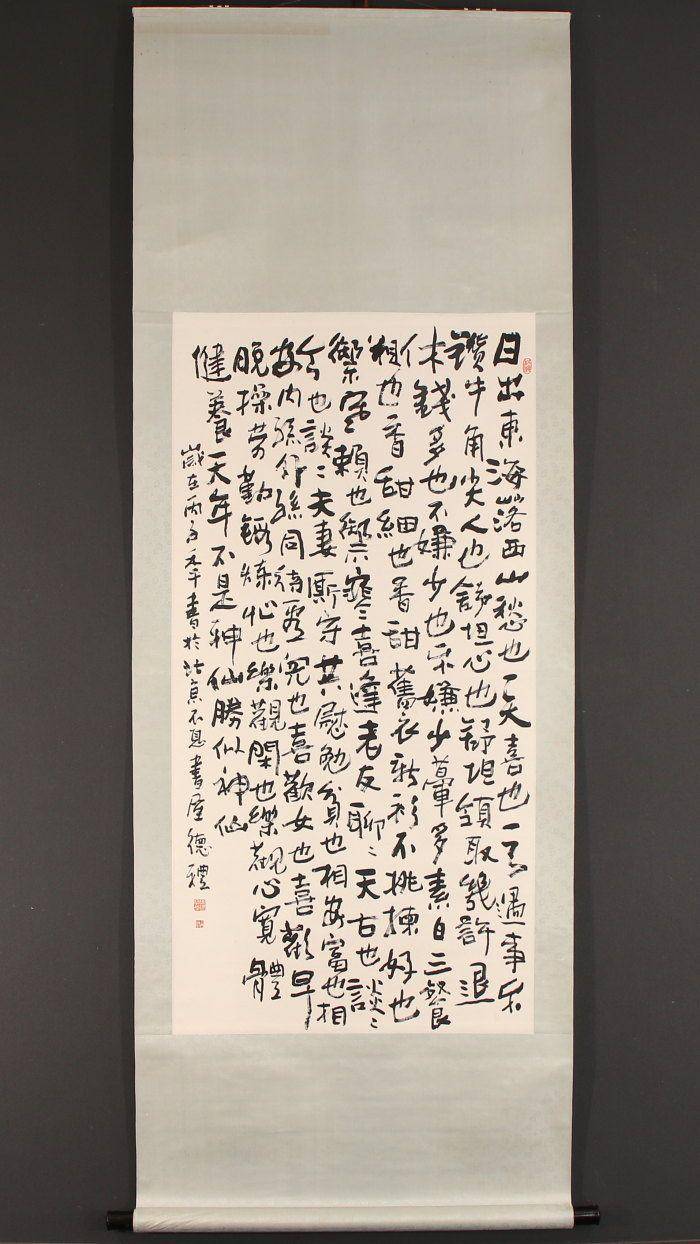 日出東海落西山愁也一天喜也一天遇事不
鑽牛角尖人也舒坦心也舒坦領取幾許退
休錢多也不嫌少也不嫌少葷多素日三餐
粗也香甜細也香甜舊衣新衫不挑揀好也
禦寒賴也禦寒喜逢老友聊々天古也談々
今也談々夫妻厮守共慰勉貧也相安富也相
安内孫外孫同待看兒也喜歡女也喜歡早
晚操勞勤鍛煉忙也樂觀閑也樂觀心寬體
健養天年不是神仙勝似神仙
歲在丙子書於不息書屋德禮